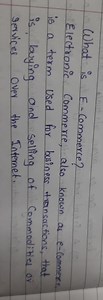 What is E-Commerce?
Electronic Commerce, also known as e-Commerce
is a term used for business transactions, that
is, buying and selling of Commodities or
Services over the Internet.